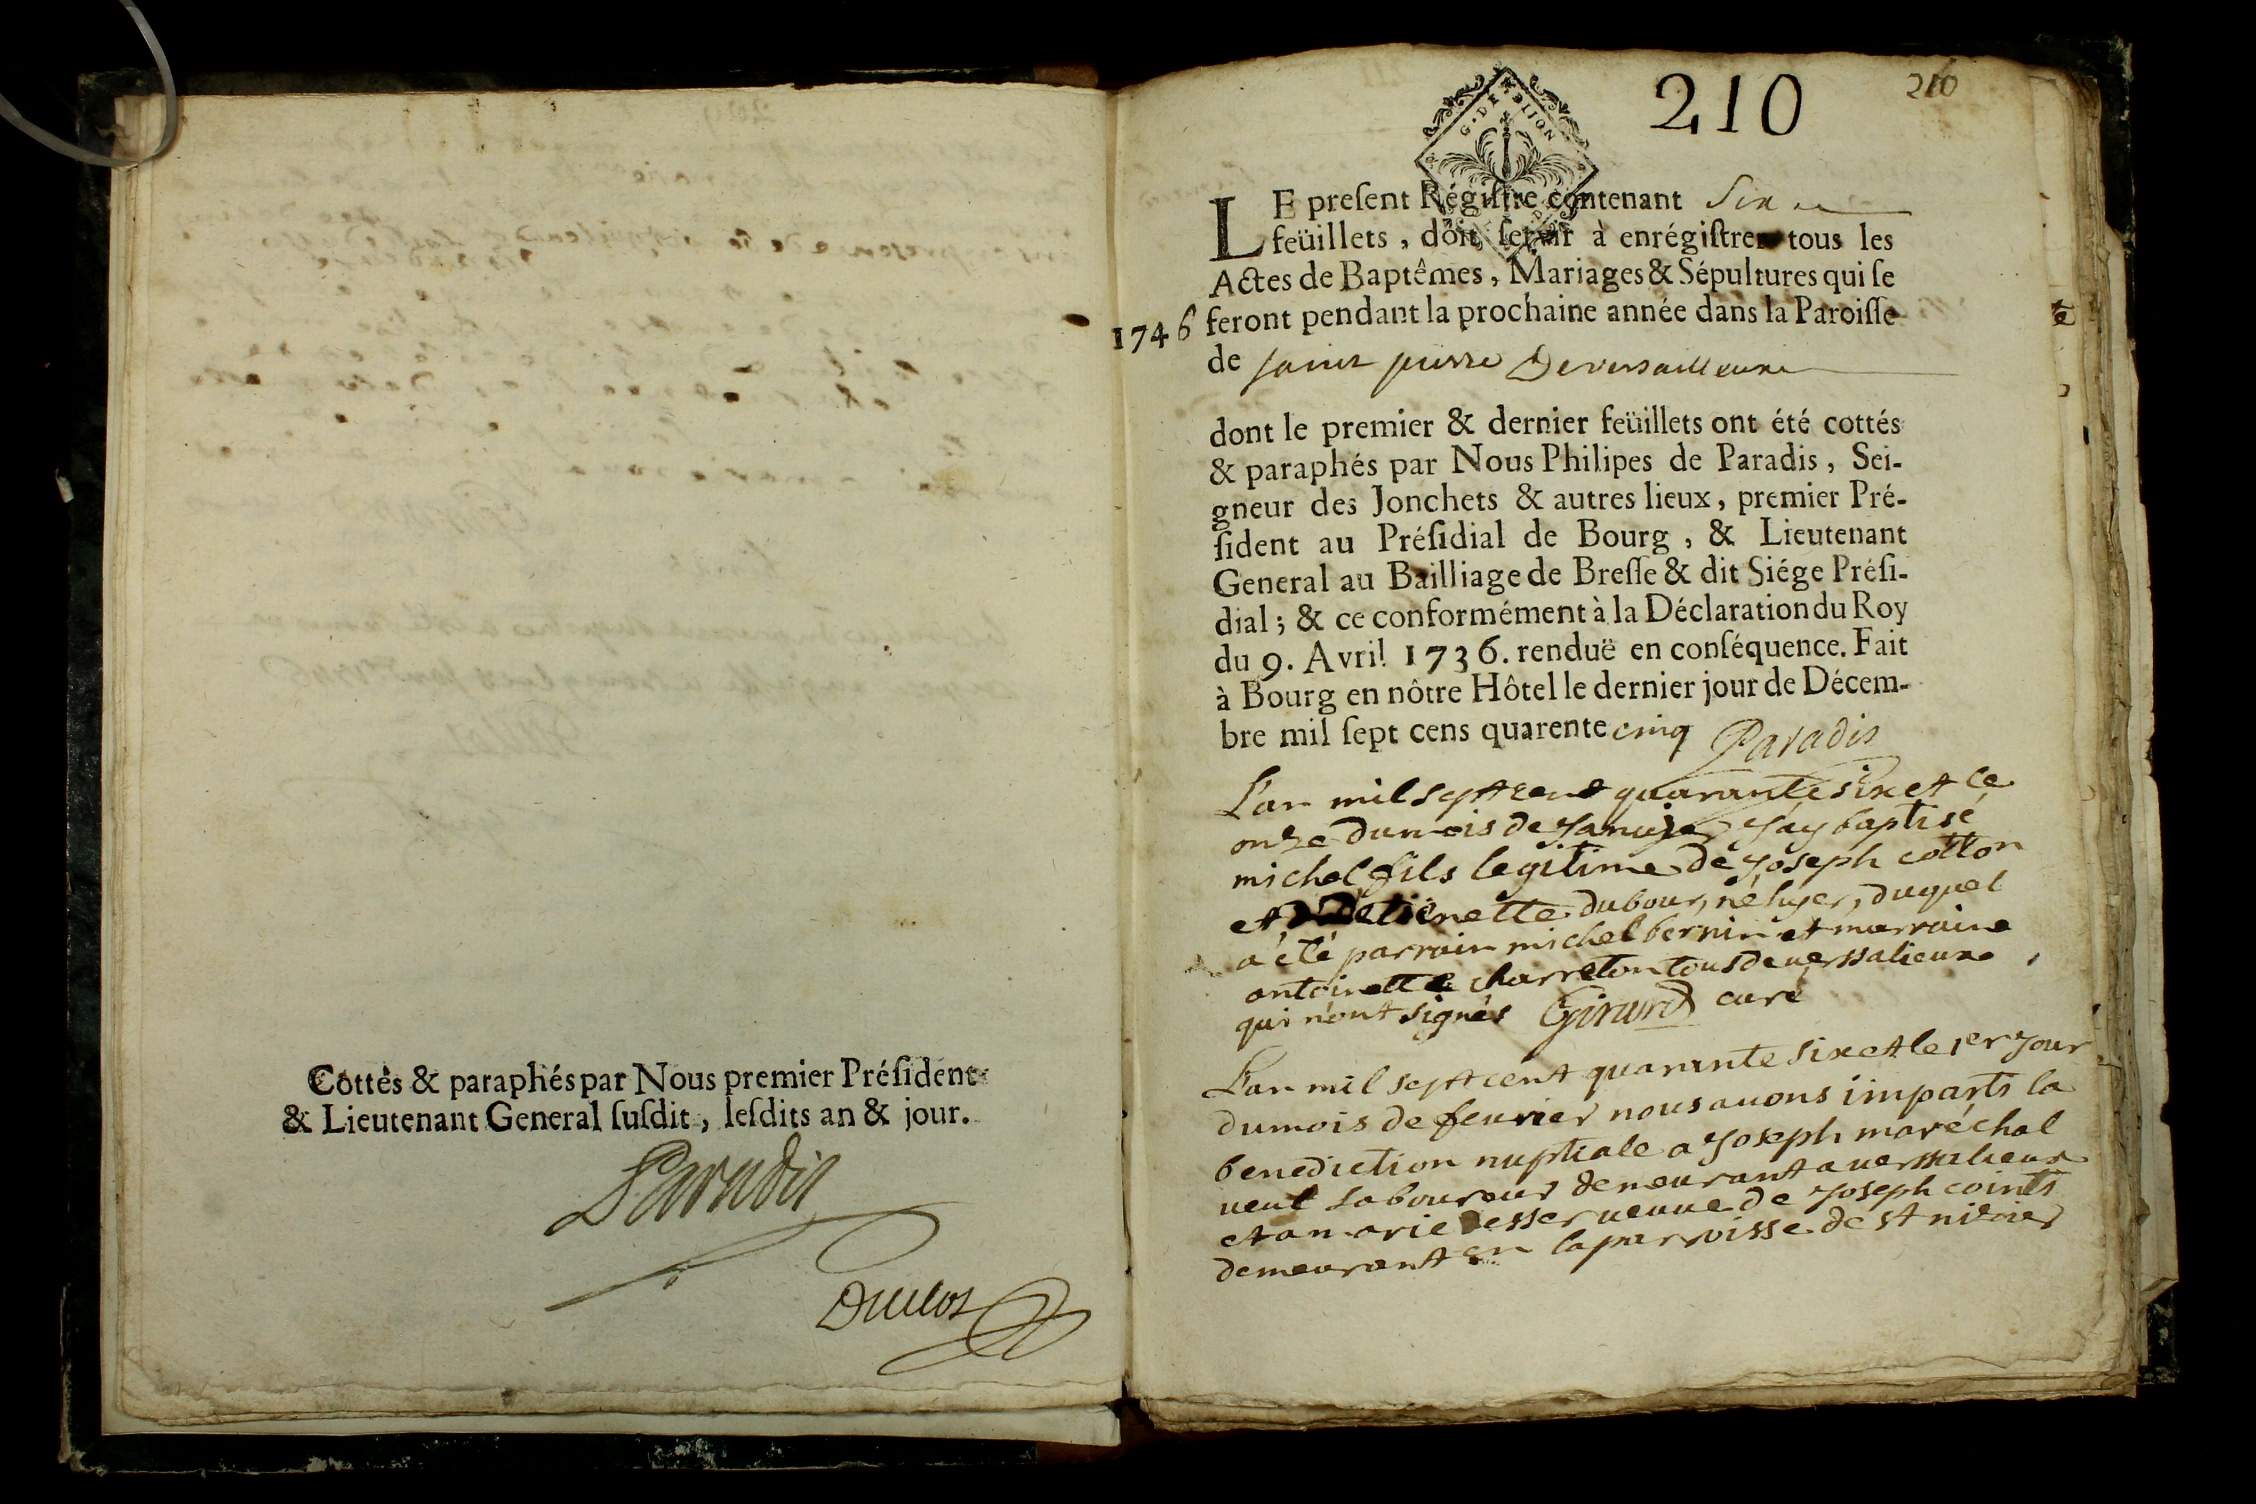 Cottés & paraphés par Nous premier Préſident
& Lieutenant General ſuſdit, leſdits an & jour.
Paradis
Duclos
210
210
G. DE DIJON
LE preſent Régiſtre contenant Six
feüillets, doit ſervir à enrégiſtrer tous les
Actes de Baptêmes, Mariages & Sépultures qui ſe
1746 feront pendant la prochaine année dans la Paroiſſe
de saint pierre De versailleux
dont le premier & dernier feüillets ont été cottés
& paraphés par Nous Philipes de Paradis, Sei-
gneur des Jonchets & autres lieux, premier Pré-
ſident au Préſidial de Bourg, & Lieutenant
General au Bailliage de Breſſe & dit Siége Préſi-
dial; & ce conformément à la Déclaration du Roy
du 9. Avril 1736. renduë en conſéquence. Fait
à Bourg en nôtre Hôtel le dernier jour de Décem-
bre mil ſept cens quarente cinq Paradis
L'an mil sept cent quarante six et le
onze du mois de Janvier J'ay baptisé
michel fils legitime de Joseph cotton
et etienette dubour, né hyer, duquel
a été parrain michel bernin et marraine
antoinette charreton tous de verssalieux
qui n'ont signés Girard curé
L'an mil sept cent quarante six et le 1er Jour
du mois de fevrier nous avons imparti la
benediction nuptiale a Joseph maréchal
veuf Laboureur demeurant a verssalieux
et a marie tesser veuve de Joseph cointi
demeurant en la parroisse de st nizier